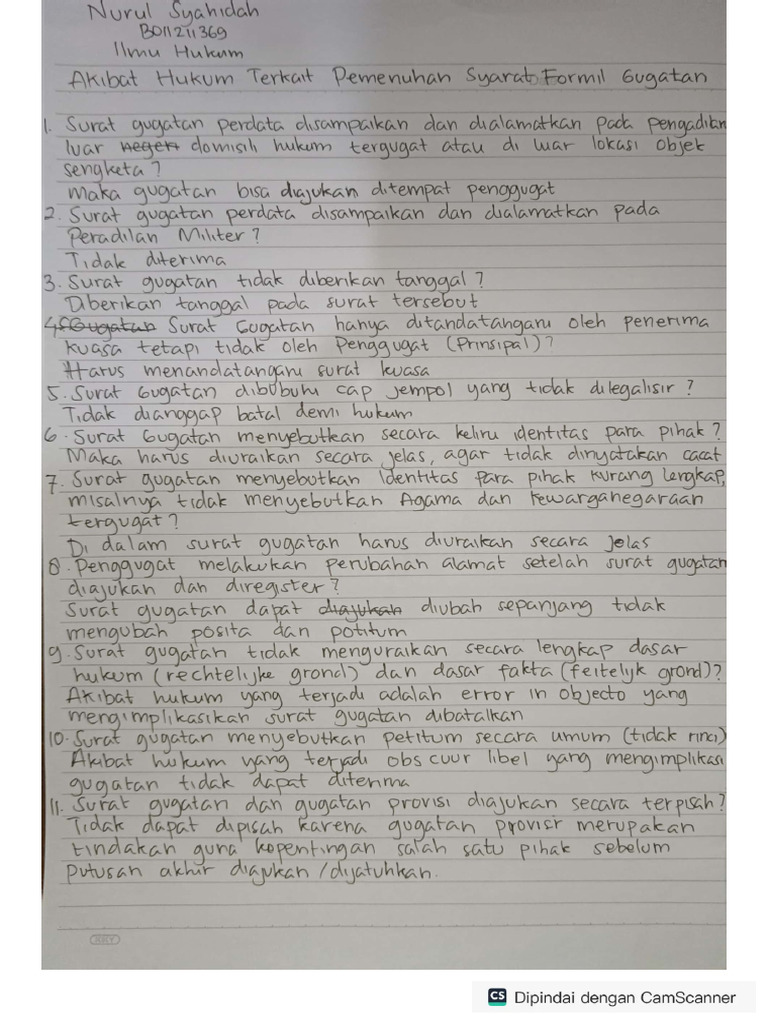 Nurul Syahidah
B011211369
Ilmu Hukum
Akibat Hukum Terkait Pemenuhan Syarat Formil Gugatan
1. Surat gugatan perdata disampaikan dan dialamatkan pada pengadilan
luar negeri domisili hukum tergugat atau di luar lokasi objek
sengketa?
Maka gugatan bisa diajukan ditempat penggugat
2. Surat gugatan perdata disampaikan dan dialamatkan pada
Peradilan Militer?
Tidak diterima
3. Surat gugatan tidak diberikan tanggal?
Diberikan tanggal pada surat tersebut
4. Gugatan Surat Gugatan hanya ditandatangani oleh penerima
kuasa tetapi tidak oleh Penggugat (Prinsipal)?
Harus menandatangani surat kuasa
5. Surat Gugatan dibubuhi cap jempol yang tidak dilegalisir?
Tidak dianggap batal demi hukum
6. Surat Gugatan menyebutkan secara keliru identitas para pihak?
Maka harus diuraikan secara jelas, agar tidak dinyatakan cacat
7. Surat gugatan menyebutkan identitas para pihak kurang lengkap,
misalnya tidak menyebutkan Agama dan kewarganegaraan
tergugat?
Di dalam surat gugatan harus diuraikan secara jelas
8. Penggugat melakukan perubahan alamat setelah surat gugatan
diajukan dan diregister?
Surat gugatan dapat diajukan diubah sepanjang tidak
mengubah posita dan potitum
9. Surat gugatan tidak menguraikan secara lengkap dasar
hukum (rechtelijke grond) dan dasar fakta (feitelijk grond)?
Akibat hukum yang terjadi adalah error in objecto yang
mengimplikasikan surat gugatan dibatalkan
10. Surat gugatan menyebutkan petitum secara umum (tidak rinci)
Akibat hukum yang terjadi obs cuur libel yang mengimplikasi
gugatan tidak dapat diterima
11. Surat gugatan dan gugatan provisi diajukan secara terpisah?
Tidak dapat dipisah karena gugatan provisi merupakan
tindakan guna kepentingan salah satu pihak sebelum
putusan akhir diajukan/dijatuhkan.
CS Dipindai dengan CamScanner